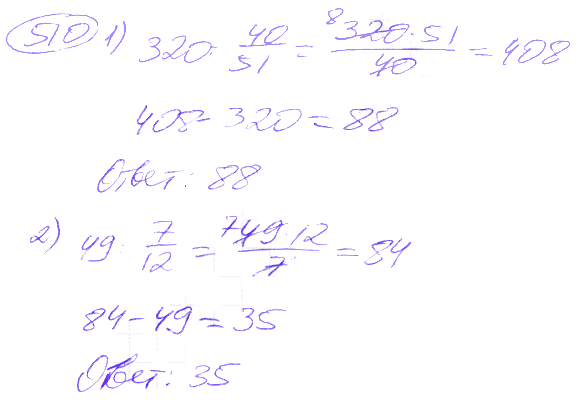 510 1) 320 : 40/51 = 8 320 · 51 / 40 = 408
408 - 320 = 88
Ответ: 88
2) 49 : 7/12 = 7 49 · 12 / 7 = 84
84 - 49 = 35
Ответ: 35